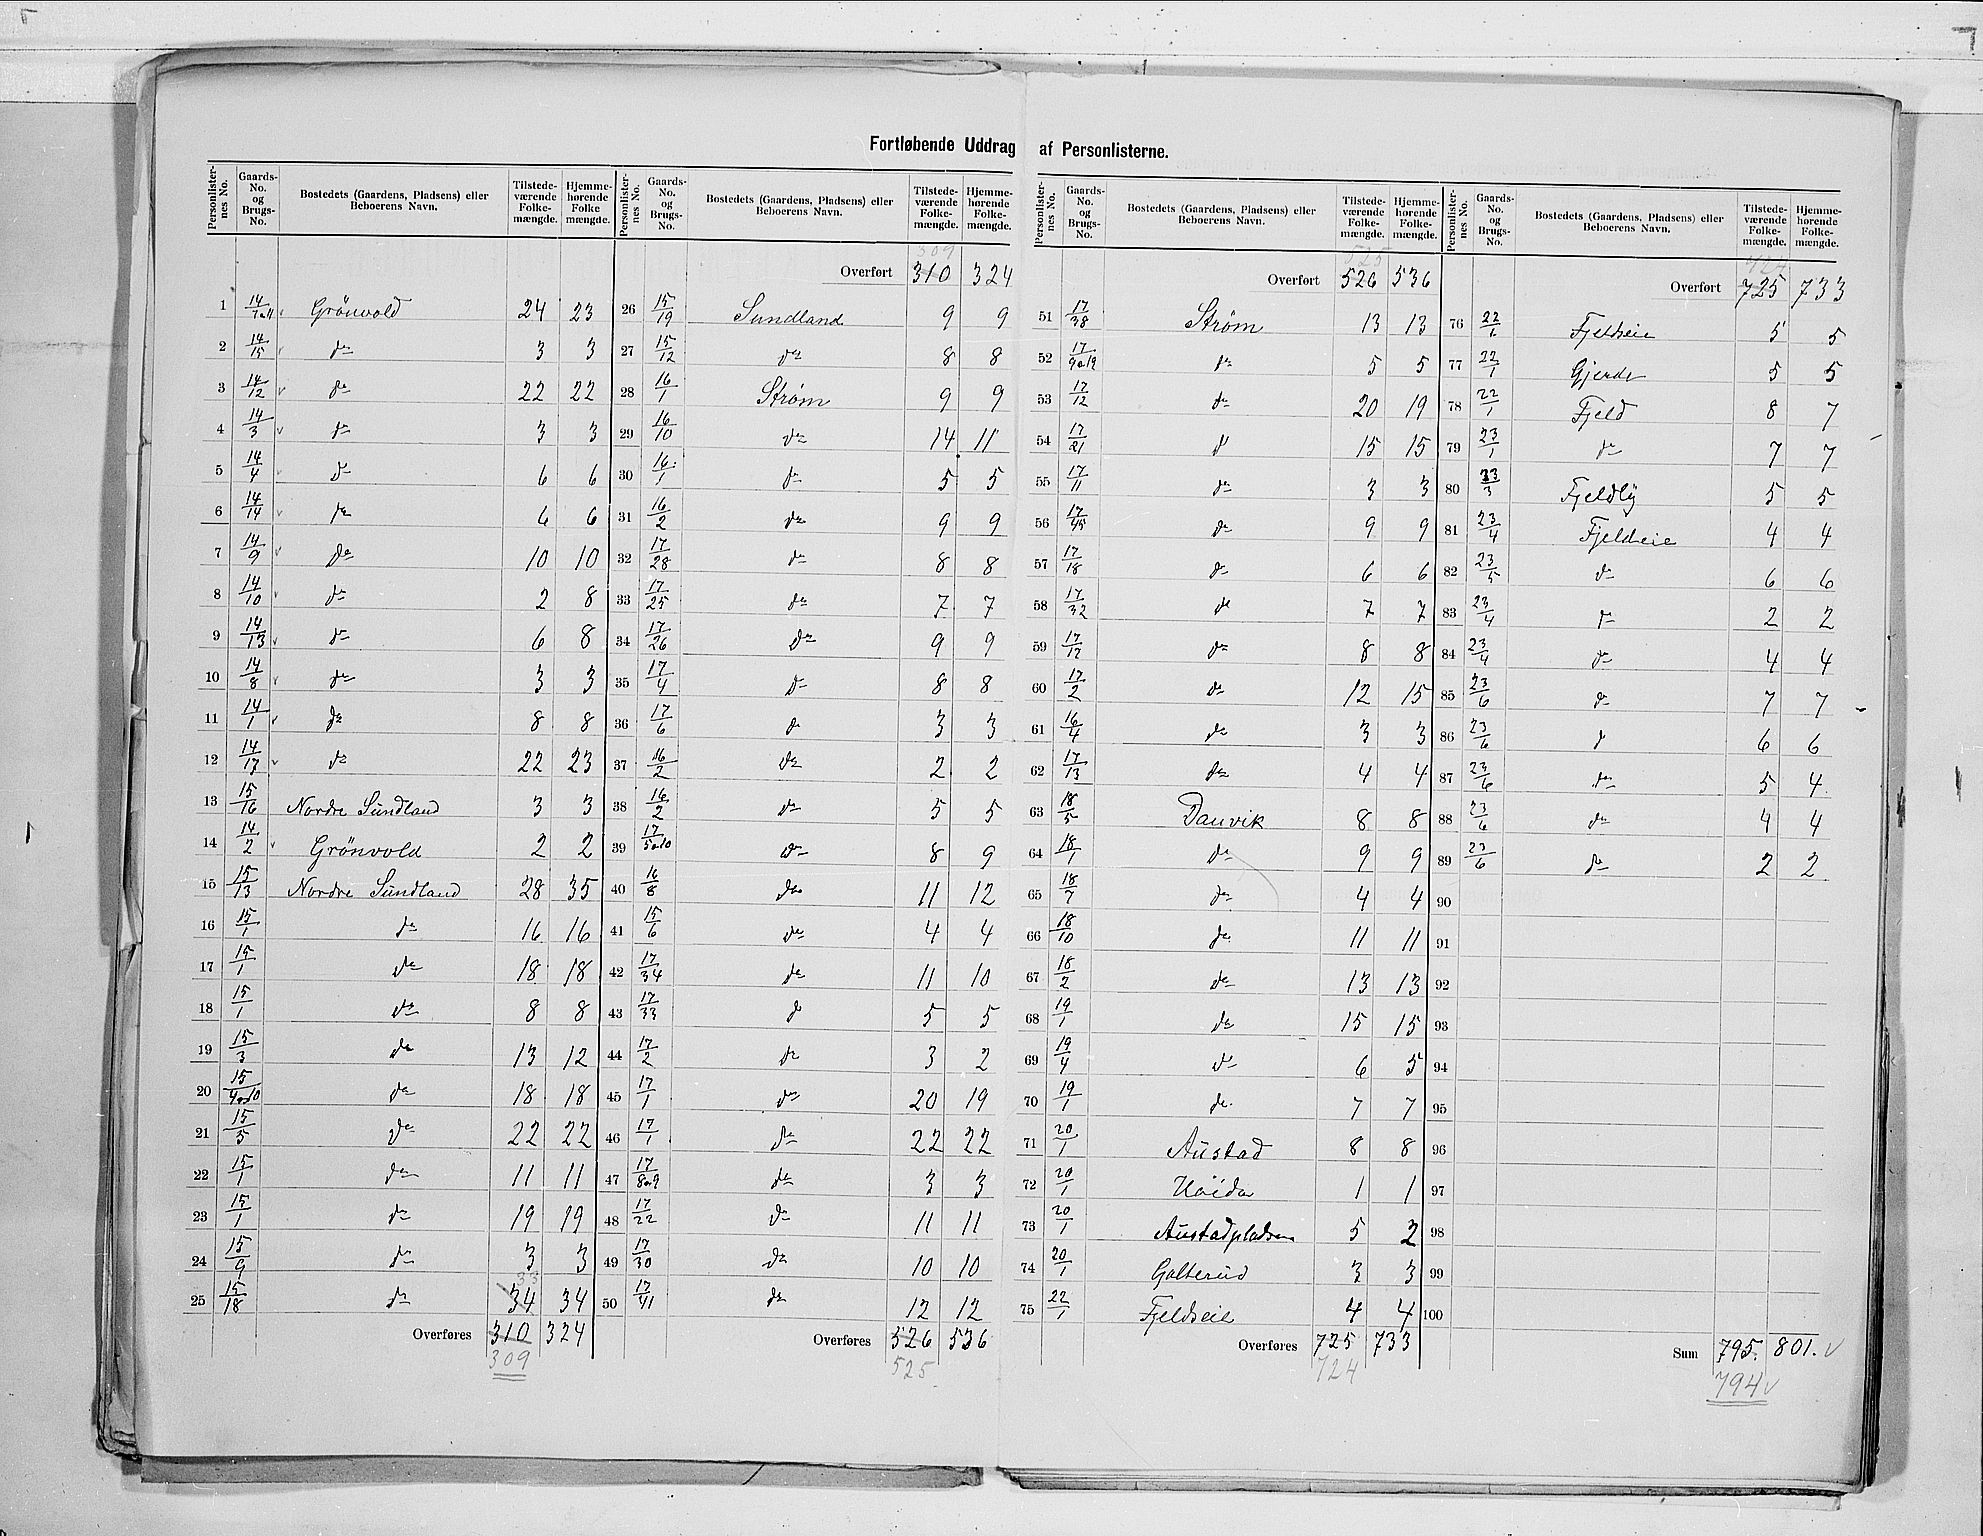 Fortløbende Uddrag af Personlisterne.
Personlister-nes No. | Gaards-No. og Brugs-No. | Bostedets (Gaardens, Pladsens) eller Beboerens Navn. | Tilstede-værende Folke-mængde. | Hjemme-hørende Folke mængde.
1 | 14/ | Grönvold | 24 | 23
2 | 14/15 | do | 3 | 3
3 | 14/12 | do | 22 | 22
4 | 14/3 | do | 3 | 3
5 | 14/4 | do | 6 | 6
6 | 14/14 | do | 6 | 6
7 | 14/9 | do | 10 | 10
8 | 14/10 | do | 2 | 8
9 | 14/13 | do | 6 | 8
10 | 14/8 | do | 3 | 3
11 | 14/1 | do | 8 | 8
12 | 14/17 | do | 22 | 23
13 | 15/16 | Nordre Sundland | 3 | 3
14 | 14/2 | Grönvold | 2 | 2
15 | 15/13 | Nordre Sundland | 28 | 35
16 | 15/1 | do | 16 | 16
17 | 15/1 | do | 18 | 18
18 | 15/1 | do | 8 | 8
19 | 15/3 | do | 13 | 12
20 | 15/4 o 10 | do | 18 | 18
21 | 15/5 | do | 22 | 22
22 | 15/1 | do | 11 | 11
23 | 15/1 | do | 19 | 19
24 | 15/9 | do | 3 | 3
25 | 15/18 | do | 34 33 | 34
Overføres 310 324
309
Personlister-nes No. | Gaards-No. og Brugs-No. | Bostedets (Gaardens, Pladsens) eller Beboerens Navn. | Tilstede-værende Folke-mængde. | Hjemme-hørende Folke-mængde.
309
Overført 310 324
26 | 15/19 | Sundland | 9 | 9
27 | 15/12 | do | 8 | 8
28 | 16/1 | Strøm | 9 | 9
29 | 16/10 | do | 14 | 11
30 | 16/1 | do | 5 | 5
31 | 16/2 | do | 9 | 9
32 | 17/28 | do | 8 | 8
33 | 17/25 | do | 7 | 7
34 | 17/26 | do | 9 | 9
35 | 17/4 | do | 8 | 8
36 | 17/6 | do | 3 | 3
37 | 16/2 | do | 2 | 2
38 | 16/2 | do | 5 | 5
39 | 17/5 o 10 | do | 8 | 9
40 | 16/8 | do | 11 | 12
41 | 15/6 | do | 4 | 4
42 | 17/34 | do | 11 | 10
43 | 17/33 | do | 5 | 5
44 | 17/2 | do | 3 | 2
45 | 17/1 | do | 20 | 19
46 | 17/1 | do | 22 | 22
47 | 17/8 o 9 | do | 3 | 3
48 | 17/22 | do | 11 | 11
49 | 17/30 | do | 10 | 10
50 | 17/41 | do | 12 | 12
Overføres 526 536
525
Personlister-nes No. | Gaards-No. og Brugs-No. | Bostedets (Gaardens, Pladsens) eller Beboerens Navn. | Tilstede-værende Folke-mængde. | Hjemme-hørende Folke-mængde.
525
Overført 526 536
51 | 17/38 | Strøm | 13 | 13
52 | 17/9 o 19 | do | 5 | 5
53 | 17/12 | do | 20 | 19
54 | 17/21 | do | 15 | 15
55 | 17/11 | do | 3 | 3
56 | 17/45 | do | 9 | 9
57 | 17/18 | do | 6 | 6
58 | 17/32 | do | 7 | 7
59 | 17/17 | do | 8 | 8
60 | 17/2 | do | 12 | 15
61 | 16/4 | do | 3 | 3
62 | 17/13 | do | 4 | 4
63 | 18/5 | Danvik | 8 | 8
64 | 18/1 | do | 9 | 9
65 | 18/7 | do | 4 | 4
66 | 18/10 | do | 11 | 11
67 | 18/2 | do | 13 | 13
68 | 19/1 | do | 15 | 15
69 | 19/4 | do | 6 | 5
70 | 19/1 | do | 7 | 7
71 | 20/1 | Austad | 8 | 8
72 | 20/1 | | 1 | 1
73 | 20/1 | Austadpladsen | 5 | 2
74 | 20/1 | Galterud | 3 | 3
75 | 22/1 | Fjeldseie | 4 | 4
Overføres 725 733
724
Personlister-nes No. | Gaards-No. og Brugs-No. | Bostedets (Gaardens, Pladsens) eller Beboerens Navn. | Tilstede-værende Folke-mængde. | Hjemme-hørende Folke-mængde.
724
Overført 725 733
76 | 22/1 | Fjeldseie | 5 | 5
77 | 22/1 | Gjerde | 5 | 5
78 | 22/1 | Fjeld | 8 | 7
79 | 23/1 | do | 7 | 7
80 | 23/3 | Fjeldly | 5 | 5
81 | 23/4 | Fjeldseie | 4 | 4
82 | 23/5 | do | 6 | 6
83 | 23/4 | do | 2 | 2
84 | 23/4 | do | 4 | 4
85 | 23/6 | do | 7 | 7
86 | 23/6 | do | 6 | 6
87 | 23/6 | do | 5 | 4
88 | 23/6 | do | 4 | 4
89 | 23/6 | do | 2 | 2
90
91
92
93
94
95
96
97
98
99
100
Sum 795. 801. v
794 v